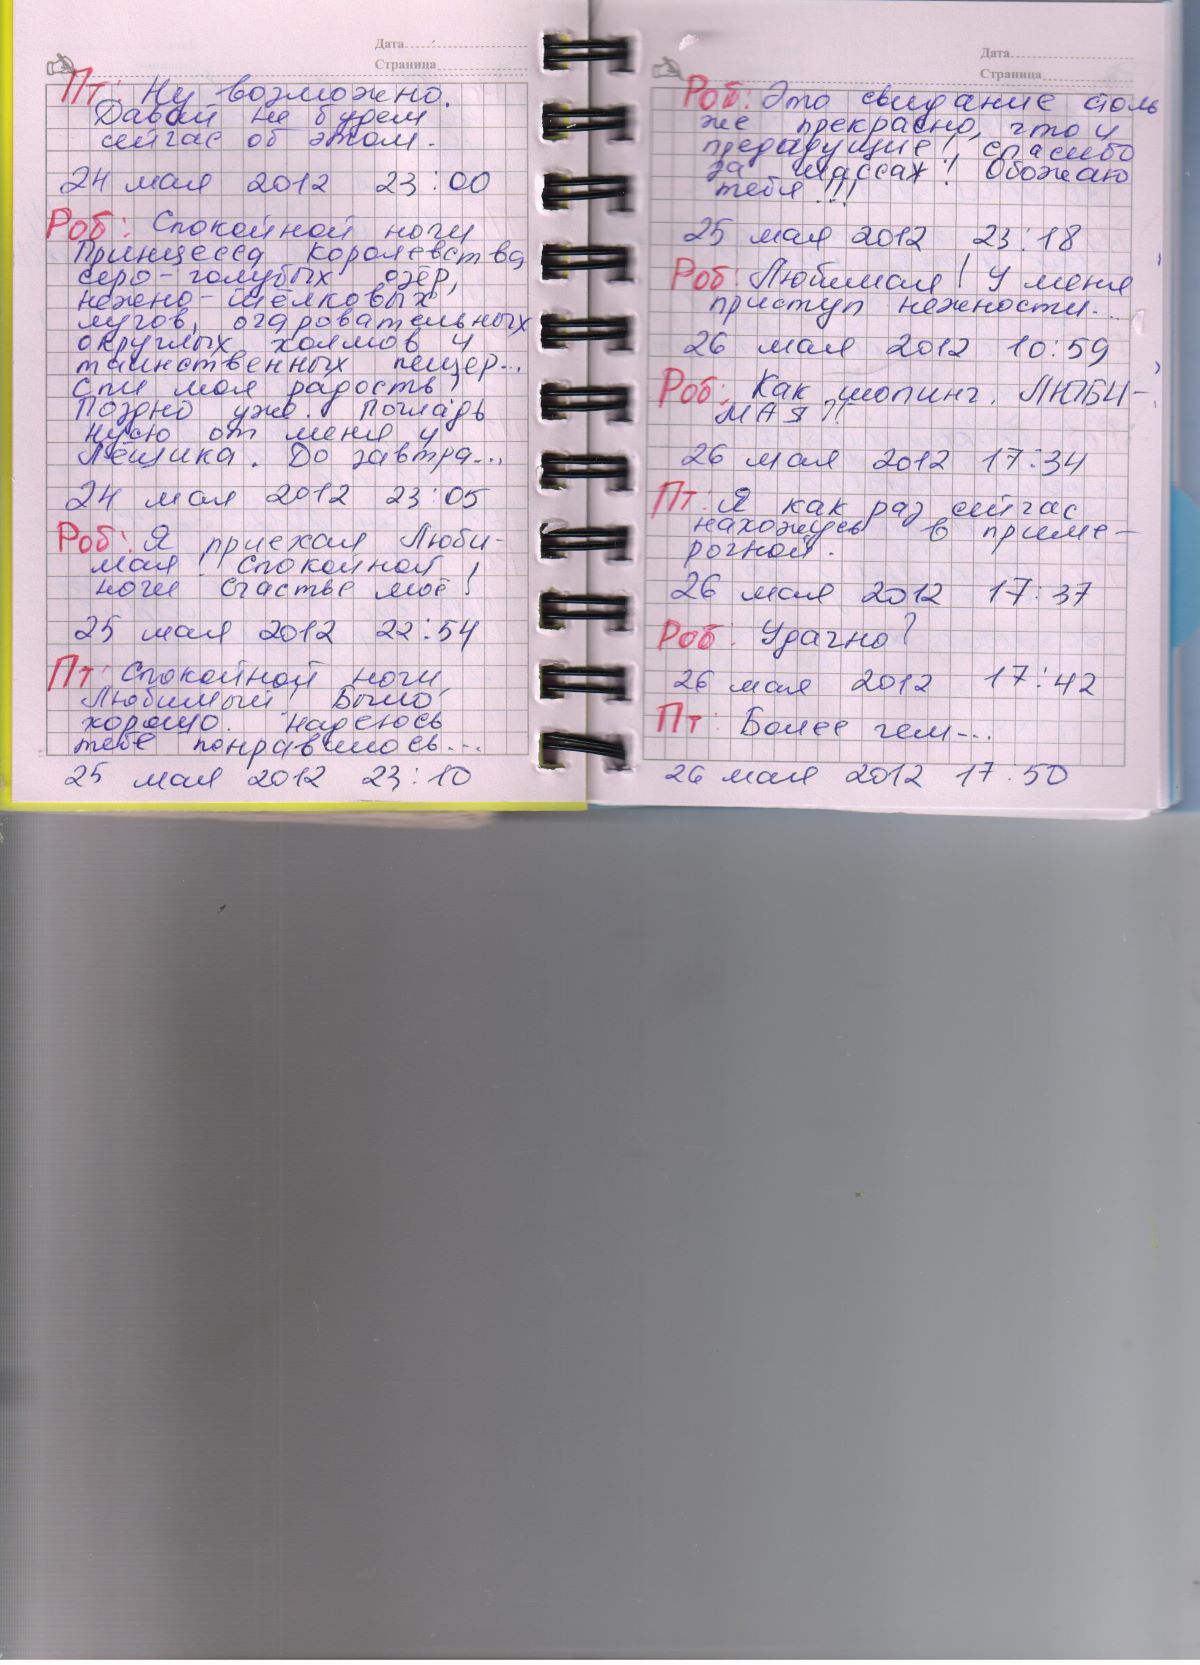 Дата
Страница
Пт: Ну возможно.
Давай не будем
сейчас об этом.
24 мая 2012 23:00
Роб: Спокойной ночи
Принцесса королевства
серо-голубых озёр,
нежно-шёлковых
лугов, очаровательных
округлых холмов и
таинственных пещер...
Спи моя радость,
Поздно уже. Погладь
кусю от меня и
Лёщика. До завтра...
24 мая 2012 23:05
Роб: Я приехал Люби-
мая! Спокойной
ночи счастье моё!
25 мая 2012 22:54
Пт: Спокойной ночи
Любимый! Было
хорошо. Надеюсь
тебе понравилось...
25 мая 2012 23:10
Дата
Страница
Роб: Это свидание столь
же прекрасно, что и
предыдущие! Спасибо
за массаж! Обожаю
тебя!!!
25 мая 2012 23:18
Роб: Любимая! У меня
приступ нежности...
26 мая 2012 10:59
Роб: Как шопинг. ЛЮБИ-
МАЯ?!
26 мая 2012 17:34
Пт: Я как раз сейчас
нахожусь в приме-
рочной.
26 мая 2012 17:37
Роб: Удачно?
26 мая 2012 17:42
Пт: Более чем...
26 мая 2012 17:50